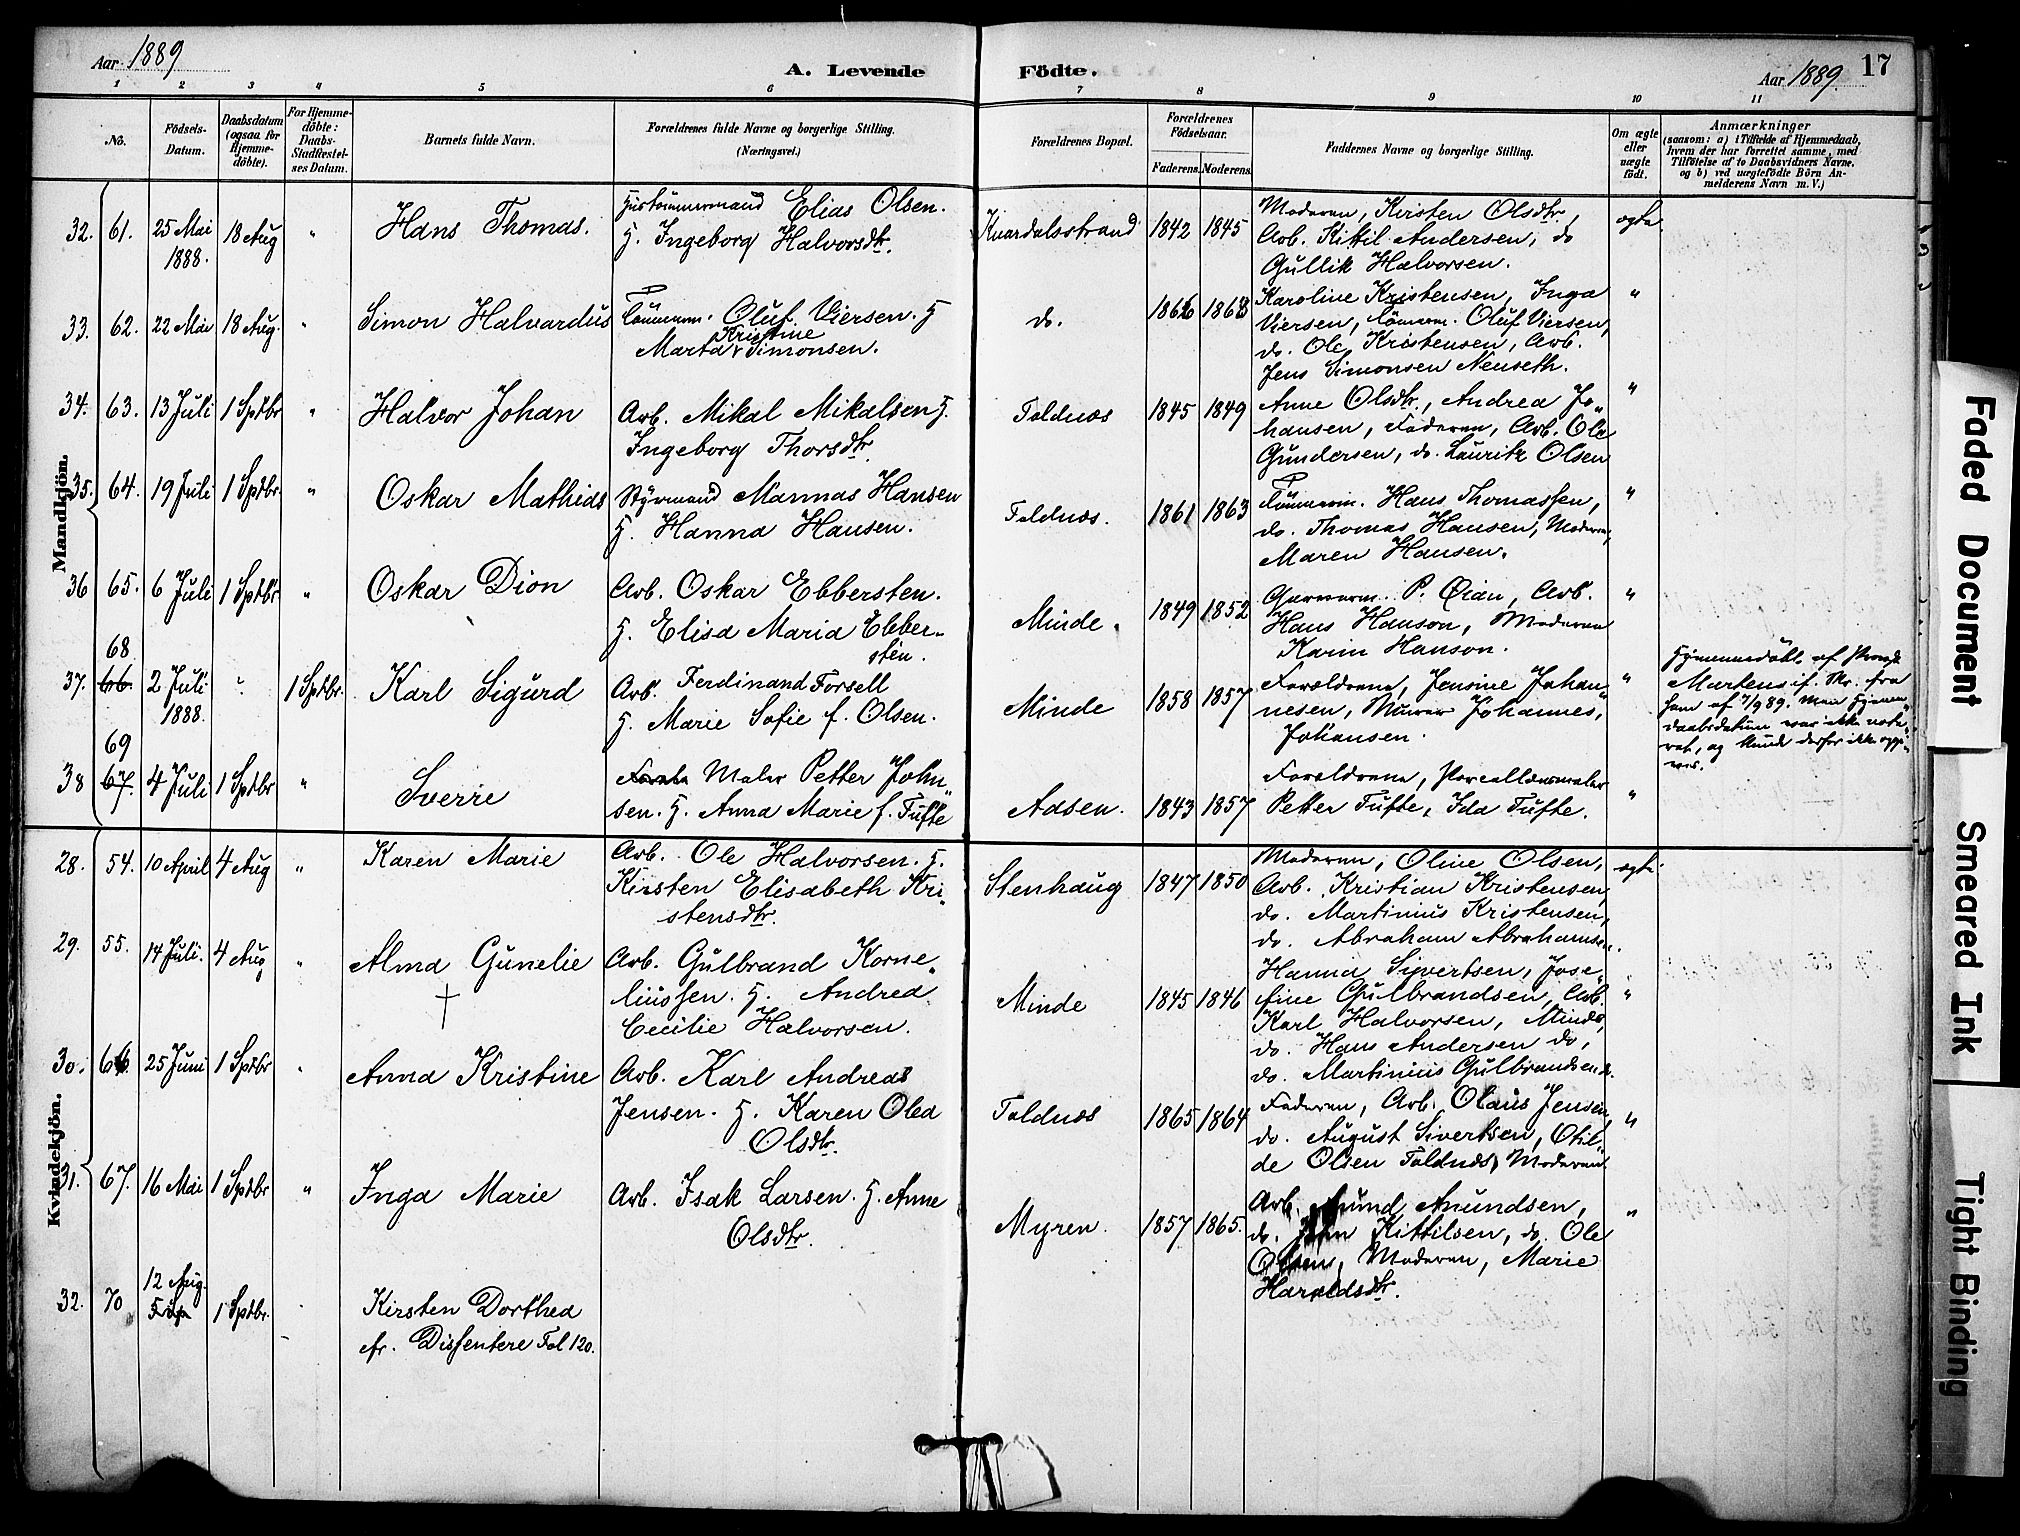 Aar 1889
A. Levende Födte.
Aar 1889 17
1 2 3 4 5 6 7 8 9 10 11
No.
Födsels-Datum.
Daabsdatum (ogsaa for Hjemme-döbte).
For Hjemme-döbte: Daabs-Stadfæstel-ses Datum.
Barnets fulde Navn.
Forældrenes fulde Navne og borgerlige Stilling.
(Næringsvei.)
Forældrenes Bopæl.
Forældrenes Födselsaar.
Faderens. Moderens.
Faddernes Navne og borgerlige Stilling.
Om ægte eller uægte födt.
Anmærkninger
(saasom: a) i Tilfælde af Hjemmedaab, hvem der har forrettet samme, med Tilföielse af to Daabsvidners Navne, og b) ved uægtefödte Börn An-melderens Navn m. V.)
Mandkjön.
32. 61. 25 Mai 1888. 18 Aug " Hans Thomas.
Elias Olsen.
H. Ingeborg Halvorsdtr.
1842 1845
Moderen, Kirsten Olsdtr,
Arb. Kittil Andersen, do
Gullik Halvorsen.
ægte
33. 62. 22 Mai 18 Aug. " Simon Halvardus
Tömmerm. Oluf Viersen. H
Kristine
Marta Simonsen.
do.
Karoline Kristensen, Inga
Viersen, Tömerm. Oluf Viersen,
do. Ole Kristensen, Arb.
Jens Simonsen Neuseth.
"
34. 63. 13 Juli 1 Sptbr " Halvor Johan
Arb. Mikal Mikalsen H.
Ingeborg Thorsdtr.
Foldnæs 1845 1849
Anne Olsdtr., Andrea Jo„
hansen, Faderen, Arb. Ole
Gundersen, do. Lauritz Olsen
"
35. 64. 19 Juli 1 Sptbr. " Oskar Mathias
Styrmand Mannas Hansen
H. Hanna Hansen.
Foldnæs. 1861 1863
Tömmerm. Hans Thomassen,
do. Thomas Hansen, Moderen,
Maren Hansen.
"
36 65. 6 Juli 1 Sptbr " Oskar Dion
Arb. Oskar Ebbersten.
H. Elisa Maria Ebber-
sten.
Minde. 1849 1852
P. Qian, Arb.
Hans Hanson, Moderen
Karin Hanson.
"
68
37. 66. 2 Juli 1888. " 1 Sptbr. Karl Sigurd
Arb. Ferdinand Forsell
H. Marie Sofie f. Olsen.
Minde 1858 1857
Forældrene, Jensine Johan„
nesen, Murer Johannes,
Johansen.
"
Hjemmedöbt af
Martens if. Skr. fra
ham af 7/9 89. Men Hjemme„
daabsdatum var ikke note„
ret, og kunde derfor ikke opgi„
ves.
69
38 67. 4 Juli 1 Sptbr " Sverre
Maler Petter John„
sen. H. Anna Marie f. Tufte
Aasen. 1843 1857
Forældrene, Porcellænsmaler
Petter Tufte, Ida Tufte.
"
Kvindekjön.
28. 54. 10 April 4 Aug " Karen Marie
Arb. Ole Halvorsen. H.
Kirsten Elisabeth Kri„
stensdtr.
Stenhaug 1847 1850
Moderen, Oline Olsen,
Arb. Kristian Kristensen,
do. Martinius Kristensen,
do. Abraham Abrahamsen.
ægte
29. 55. 14 Juli. 4 Aug " Alma Gunelie
†
Arb. Gulbrand Korne„
liussen. H. Andrea
Cecilie Halvorsen.
Minde 1845 1846
Hanna Sivertsen, Jose„
fine Gulbrandsen, Arb.
Karl Halvorsen, Minde,
do. Hans Andersen do,
do. Martinius Gulbrandsen do.
"
30. 66. 25 Juni 1 Sptbr " Anna Kristine
Arb. Karl Andreas
Jensen. H. Karen Olea
Olsdtr.
Foldnæs 1865 1864
Faderen, Arb. Olaus Jensen,
do. August Sivertsen, Otil„
de Olsen Foldnæs, Moderen.
"
31. 67. 16 Mai 1 Sptbr " Inga Marie
Arb. Isak Larsen. H. Anne
Olsdtr.
Myren. 1857 1865.
Arb. Anundsen,
do. Kittilsen, do. Ole
Olsens, Moderen, Marie
Haroldsdtr.
"
32. 70 12 Aug. 1 Sptbr. Kirsten Dorthea
cfr. Dissentere Fol 120.
Faded Document
Smeared Ink
Tight Binding